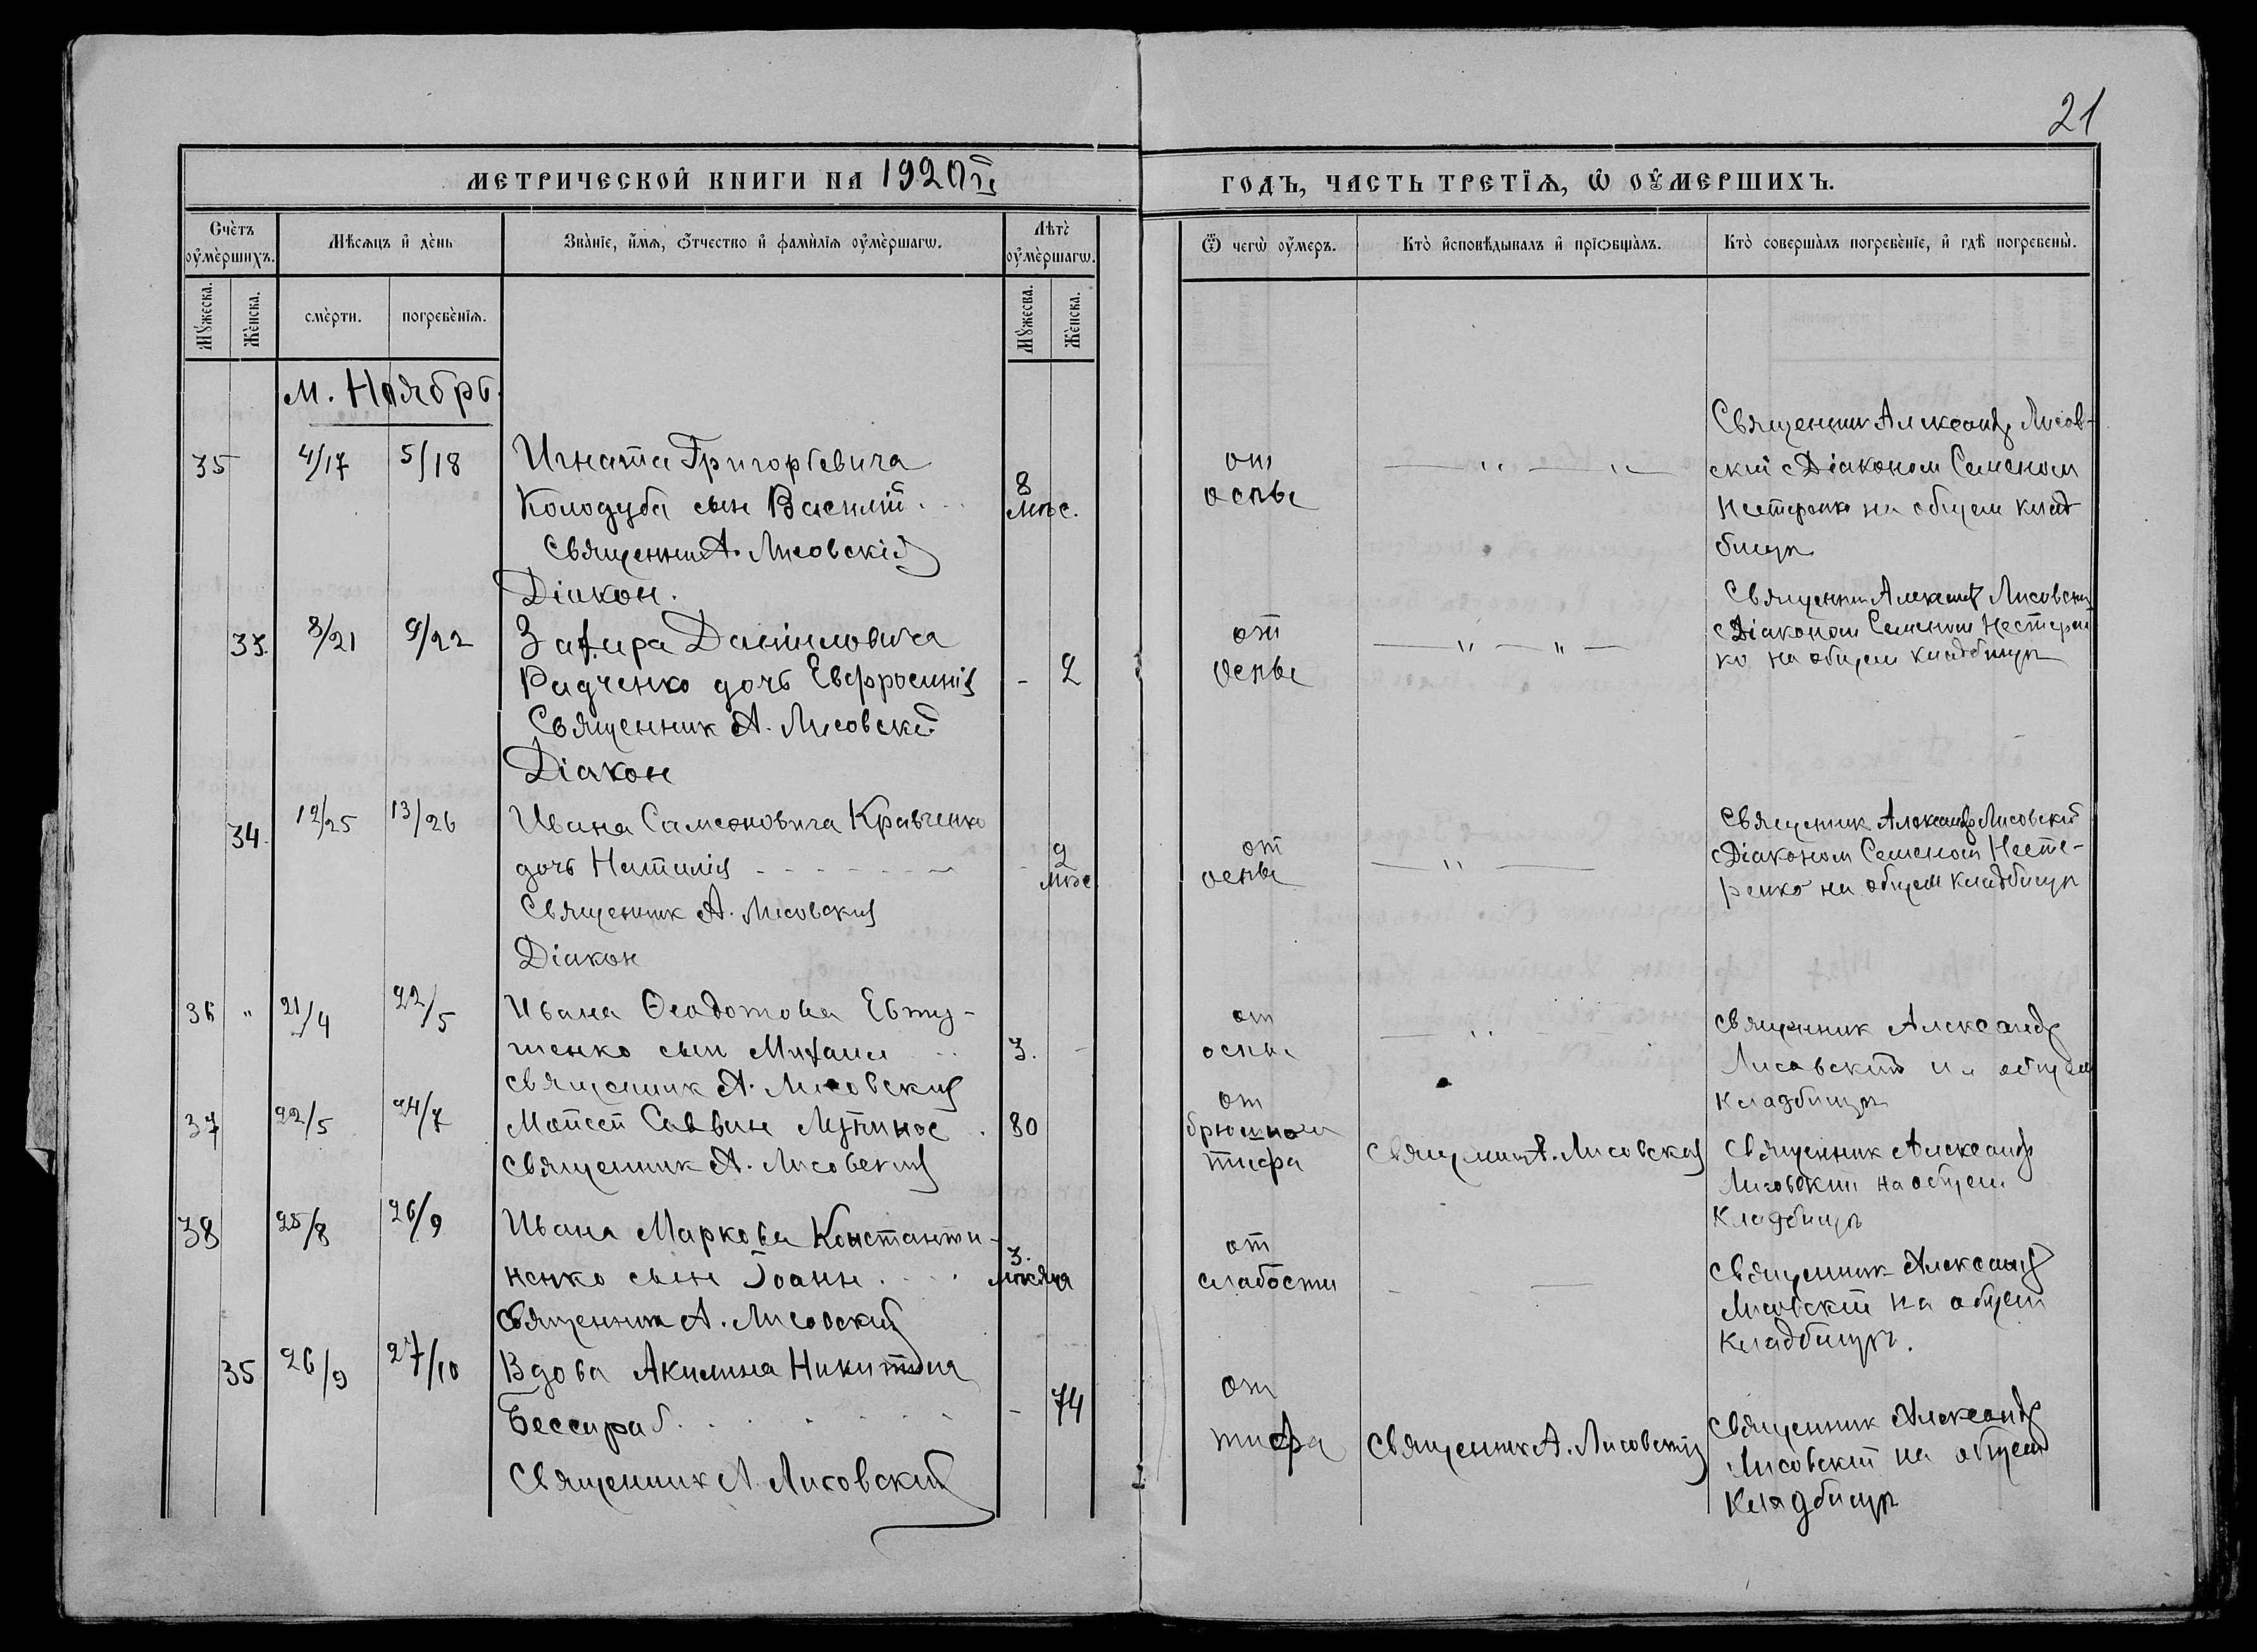 21
МЕТРИЧЕСКОЙ КНИГИ НА 1920й
ГОДЪ, ЧАСТЬ ТРЕТІѦ, Ѡ ОУМЕРШИХЪ.
Счетъ оумершихъ.
Мѣсѧцъ и день
Званіе, имѧ, отчество и фамиліѧ оумершагѡ.
Лѣта оумершагѡ.
Ѿ чегѡ оумеръ.
Кто исповѣдывалъ и пріобщалъ.
Кто совершалъ погребеніе, и гдѣ погребены.
Мужеска.
Женска.
смерти.
погребеніѧ.
Мужеска.
Женска.
м. Ноябрь.
35
4/17
5/18
Игната Григорьевича
Колодуба сын Василій
Священник А. Лисовскій
Діакон.
8
мѣс.
от
оспы
Священник Александр Лисов-
скій с Діаконом Семеном
Нестеренко на общем клад
бищѣ
33.
8/21
9/22
Захара Данииловича
Радченко дочь Евфросинія
Священник А. Лисовскій
Діакон
- 2
от
Оспы
Священник Александр Лисовский
с Діаконом Семеном Нестерен
ко на общем кладбищѣ
34.
12/25
13/26
Ивана Самсоновича Кравченко
дочь Наталія
Священник А. Лисовский
Діакон
2
мѣс
от
оспы
Священник Александр Лисовский
с Діаконом Семеном Несте-
ренко на общем кладбищѣ
36 "
21/4
22/5
Ивана Ѳеодотова Евту-
шенко сын Михаил
священник А. Лисовский
3. -
от
оспы
священник Александр
Лисовский на общем
кладбищѣ
37
22/5
24/7
Моисей Саввин
священник А. Лисовский
80
от
брюшного
тифа
Священник А. Лисовский
Священник Александр
Лисовский на общем
Кладбищѣ
38
25/8
26/9
Ивана Маркова Константи-
ненко сын Іоанн
Священник А. Лисовский
3.
мѣсяца
от
слабости
священник Александр
Лисовскій на общем
кладбищѣ.
35
26/9
27/10
Вдова Акилина Никитина
Бессараб
Священник А. Лисовский
- 74
от
тифа
Священник А. Лисовский
священник Александр
Лисовскій на общем
Кладбищѣ